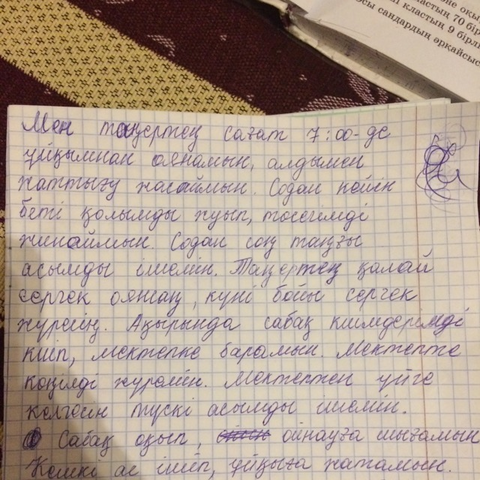 не оқы
тастың 70 бір
і кластың 9 бірлі
осы сандардың әрқайсыс
Мен таңертең сағат 7:00-де
ұйқымнан оянамын, алдымен
жаттығу жасаймын. Содан кейін
беті қолымды жуып, төсегімді
жинаймын. Содан соң таңғы
асымды ішемін. Таңертең қалай
сергек оянсаң, күні бойы сергек
жүресің. Ақырында сабақ киімдерімді
киіп, мектепке барамын. Мектепте
көңілді жүремін. Мектептен үйге
келгесін түскі асымды ішемін.
Сабақ оқып, ойнауға шығамын
Кешкі ас ішіп, ұйқыға жатамын.